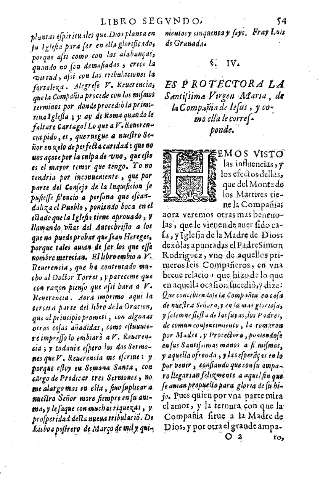 LIBRO SEGVNDO. 54
plantas espirituales que Dios planta en
su Iglesia para ser en ella glorificado,
porque assi como con las alabanças,
quando no son demasiadas, crece la
virtud, assi con las tribulaciones la
fortaleza. Alegrese V. Reuerencia,
que la Compañia procede con los mismos
terminos por donde procediò la primi-
tiua Iglesia; y ay de Roma quando le
faltare Cartago! Lo que a V. Reueren-
cia pido, es, que ruegue a nuestro Señor
en zelo de perfecta caridad: que no
nos açote por la culpa de vno, que este
es el mayor temor que tengo. Yo no
tendria por inconueniente, que por
parte del Consejo de la Inquisicion se
pusiesse silencio a persona que escan-
daliza el Pueblo, poniendo boca en el
estado que la Iglesia tiene aprouado, y
llamando vñas del Antechristo a los
que no puede prouar que sean Hereges,
porque tales auian de ser los que esse
nombre merecian. El libro embio a V.
Reuerencia, que ha contentado mu-
cho al Doctor Torres, y pareceme que
con razon pienso que assi harà a V.
Reuerencia. Aora imprimo aqui la
tercera parte del libro de la Oracion,
que al principio prometi, con algunas
otras cosas añadidas, como estuuie-
re impresso lo embiarè a V. Reueren-
cia; y todauia espero los dos Sermo-
nes que V. Reuerencia me escriue: y
porque estoy en Semana Santa, con
cargo de Predicar tres Sermones, no
me alargo mas en esta, sino suplicar a
nuestro Señor more siempre en su ani-
ma, y le saque con muchas riquezas, y
prosperidad desta nueua tribulacion. De
Lisboa postrero de Março de mil y qui-
nientos y cinquenta y seys. Fray Luis
de Granada.
§. IV.
ES PROTECTORA LA
Santissima Virgen Maria, de
la Compañia de Iesus, y co-
mo ella le corres-
ponde.
HEMOS VISTO
las influencias, y
los efectos dellas,
que del Monte de
los Martires tie-
ne la Compañia:
aora veremos otras mas beneuo-
las, que le vienen de auer sido ca-
sa, y Iglesia de la Madre de Dios:
dexòlas apuntadas el Padre Simon
Rodriguez, vno de aquellos pri-
meros seis Compañeros, en vn
breue relato, que hizo de lo que
en aquella ocasion sucediò, y dize:
Que concibieron de la Compañia en casa
de nuestra Señora, y en la mas gloriosa,
y solemne fiesta de las suyas, los Padres,
de comun consentimiento, la tomaron
por Madre, y Protectora, poniendose
en sus Santissimas manos a si mismos,
y aquella ofrenda, y las esperanças en lo
por venir, confiando que con su ampa-
ro llegarian felizmente a aquel fin que
se auian propuesto para gloria de su hi-
jo. Pues quien por vna parte mira
el amor, y la ternura con que la
Compañia sirue a la Madre de
Dios, y por otra el grande ampa-
O 2 ro,